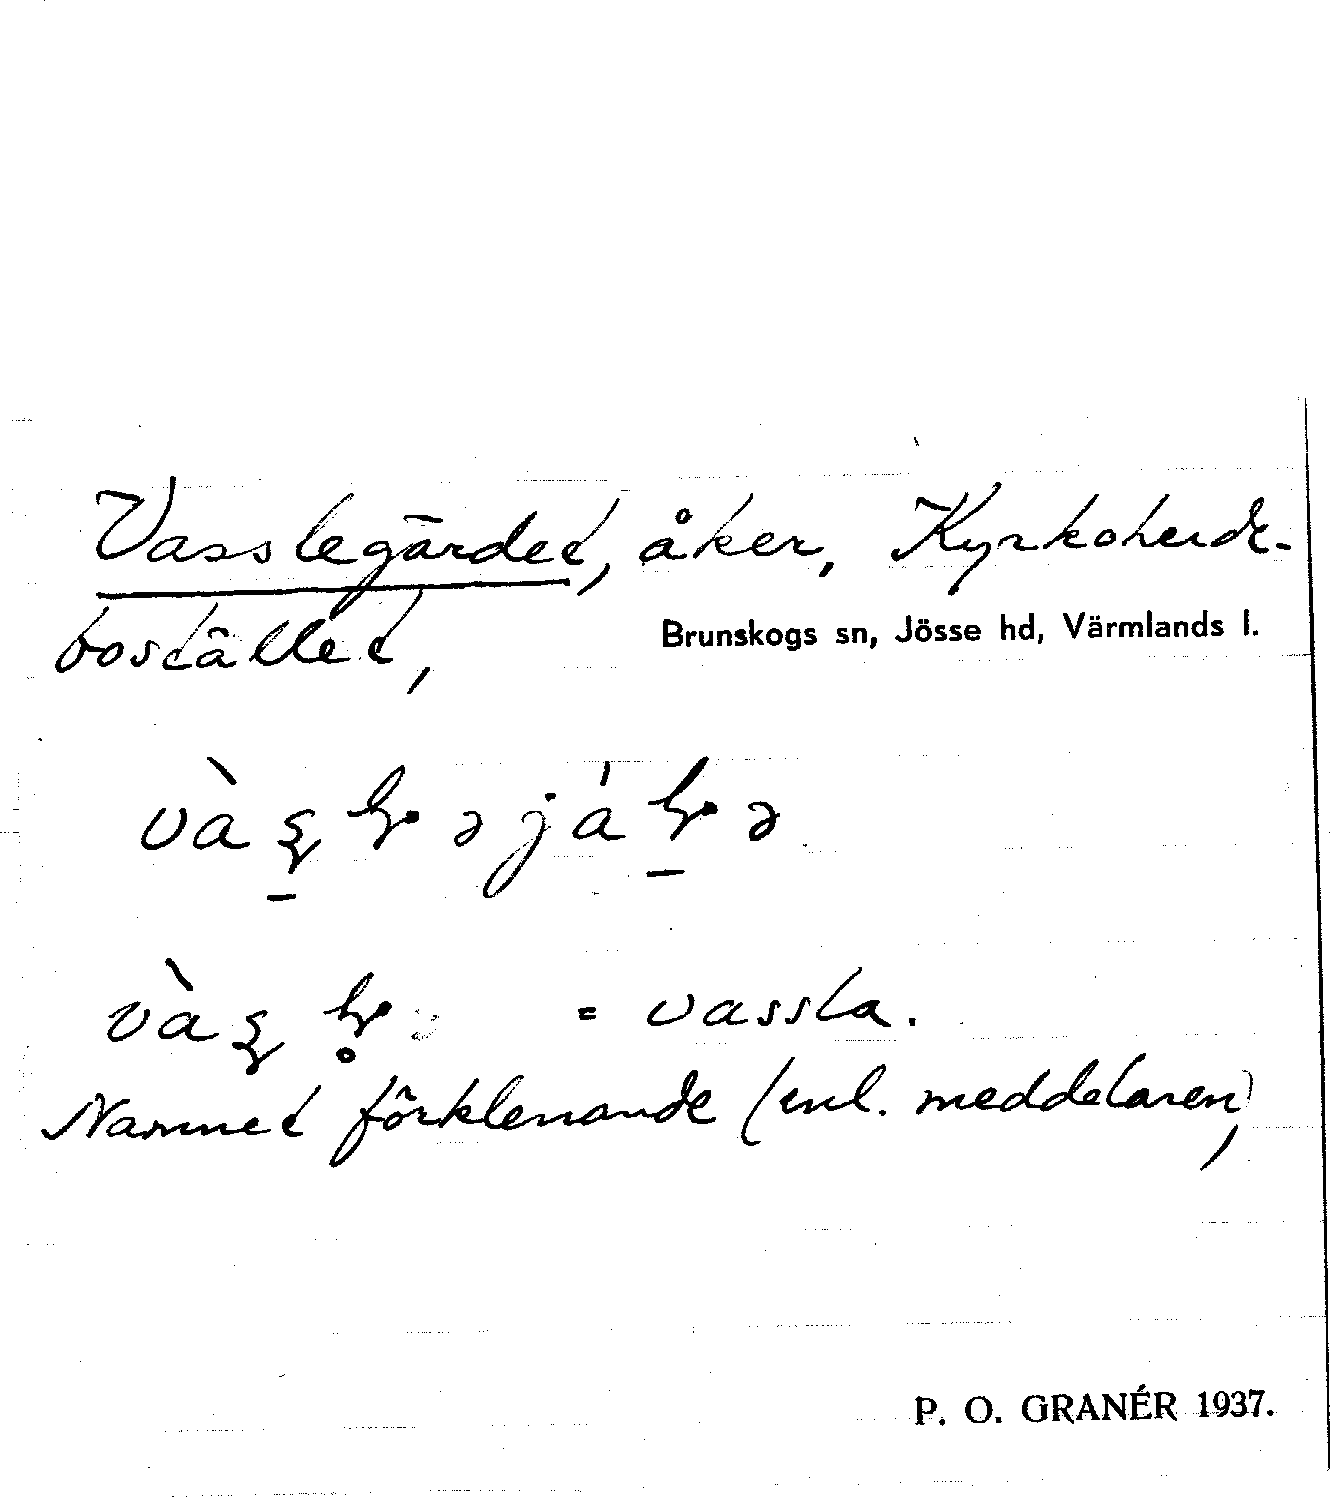 Vasslegärdet, åker, Kyrkoherde-
bostället,
Brunskogs sn, Jösse hd, Värmlands l.
= vassla.
Namnet förklenande (enl. meddelaren)
P. O. GRANÉR 1937.